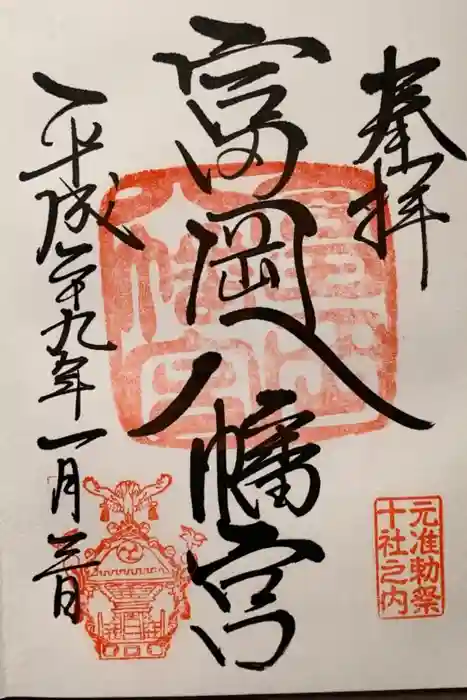 奉拝
富岡八幡宮
平成二十九年一月二日
元准勅祭
十社之内